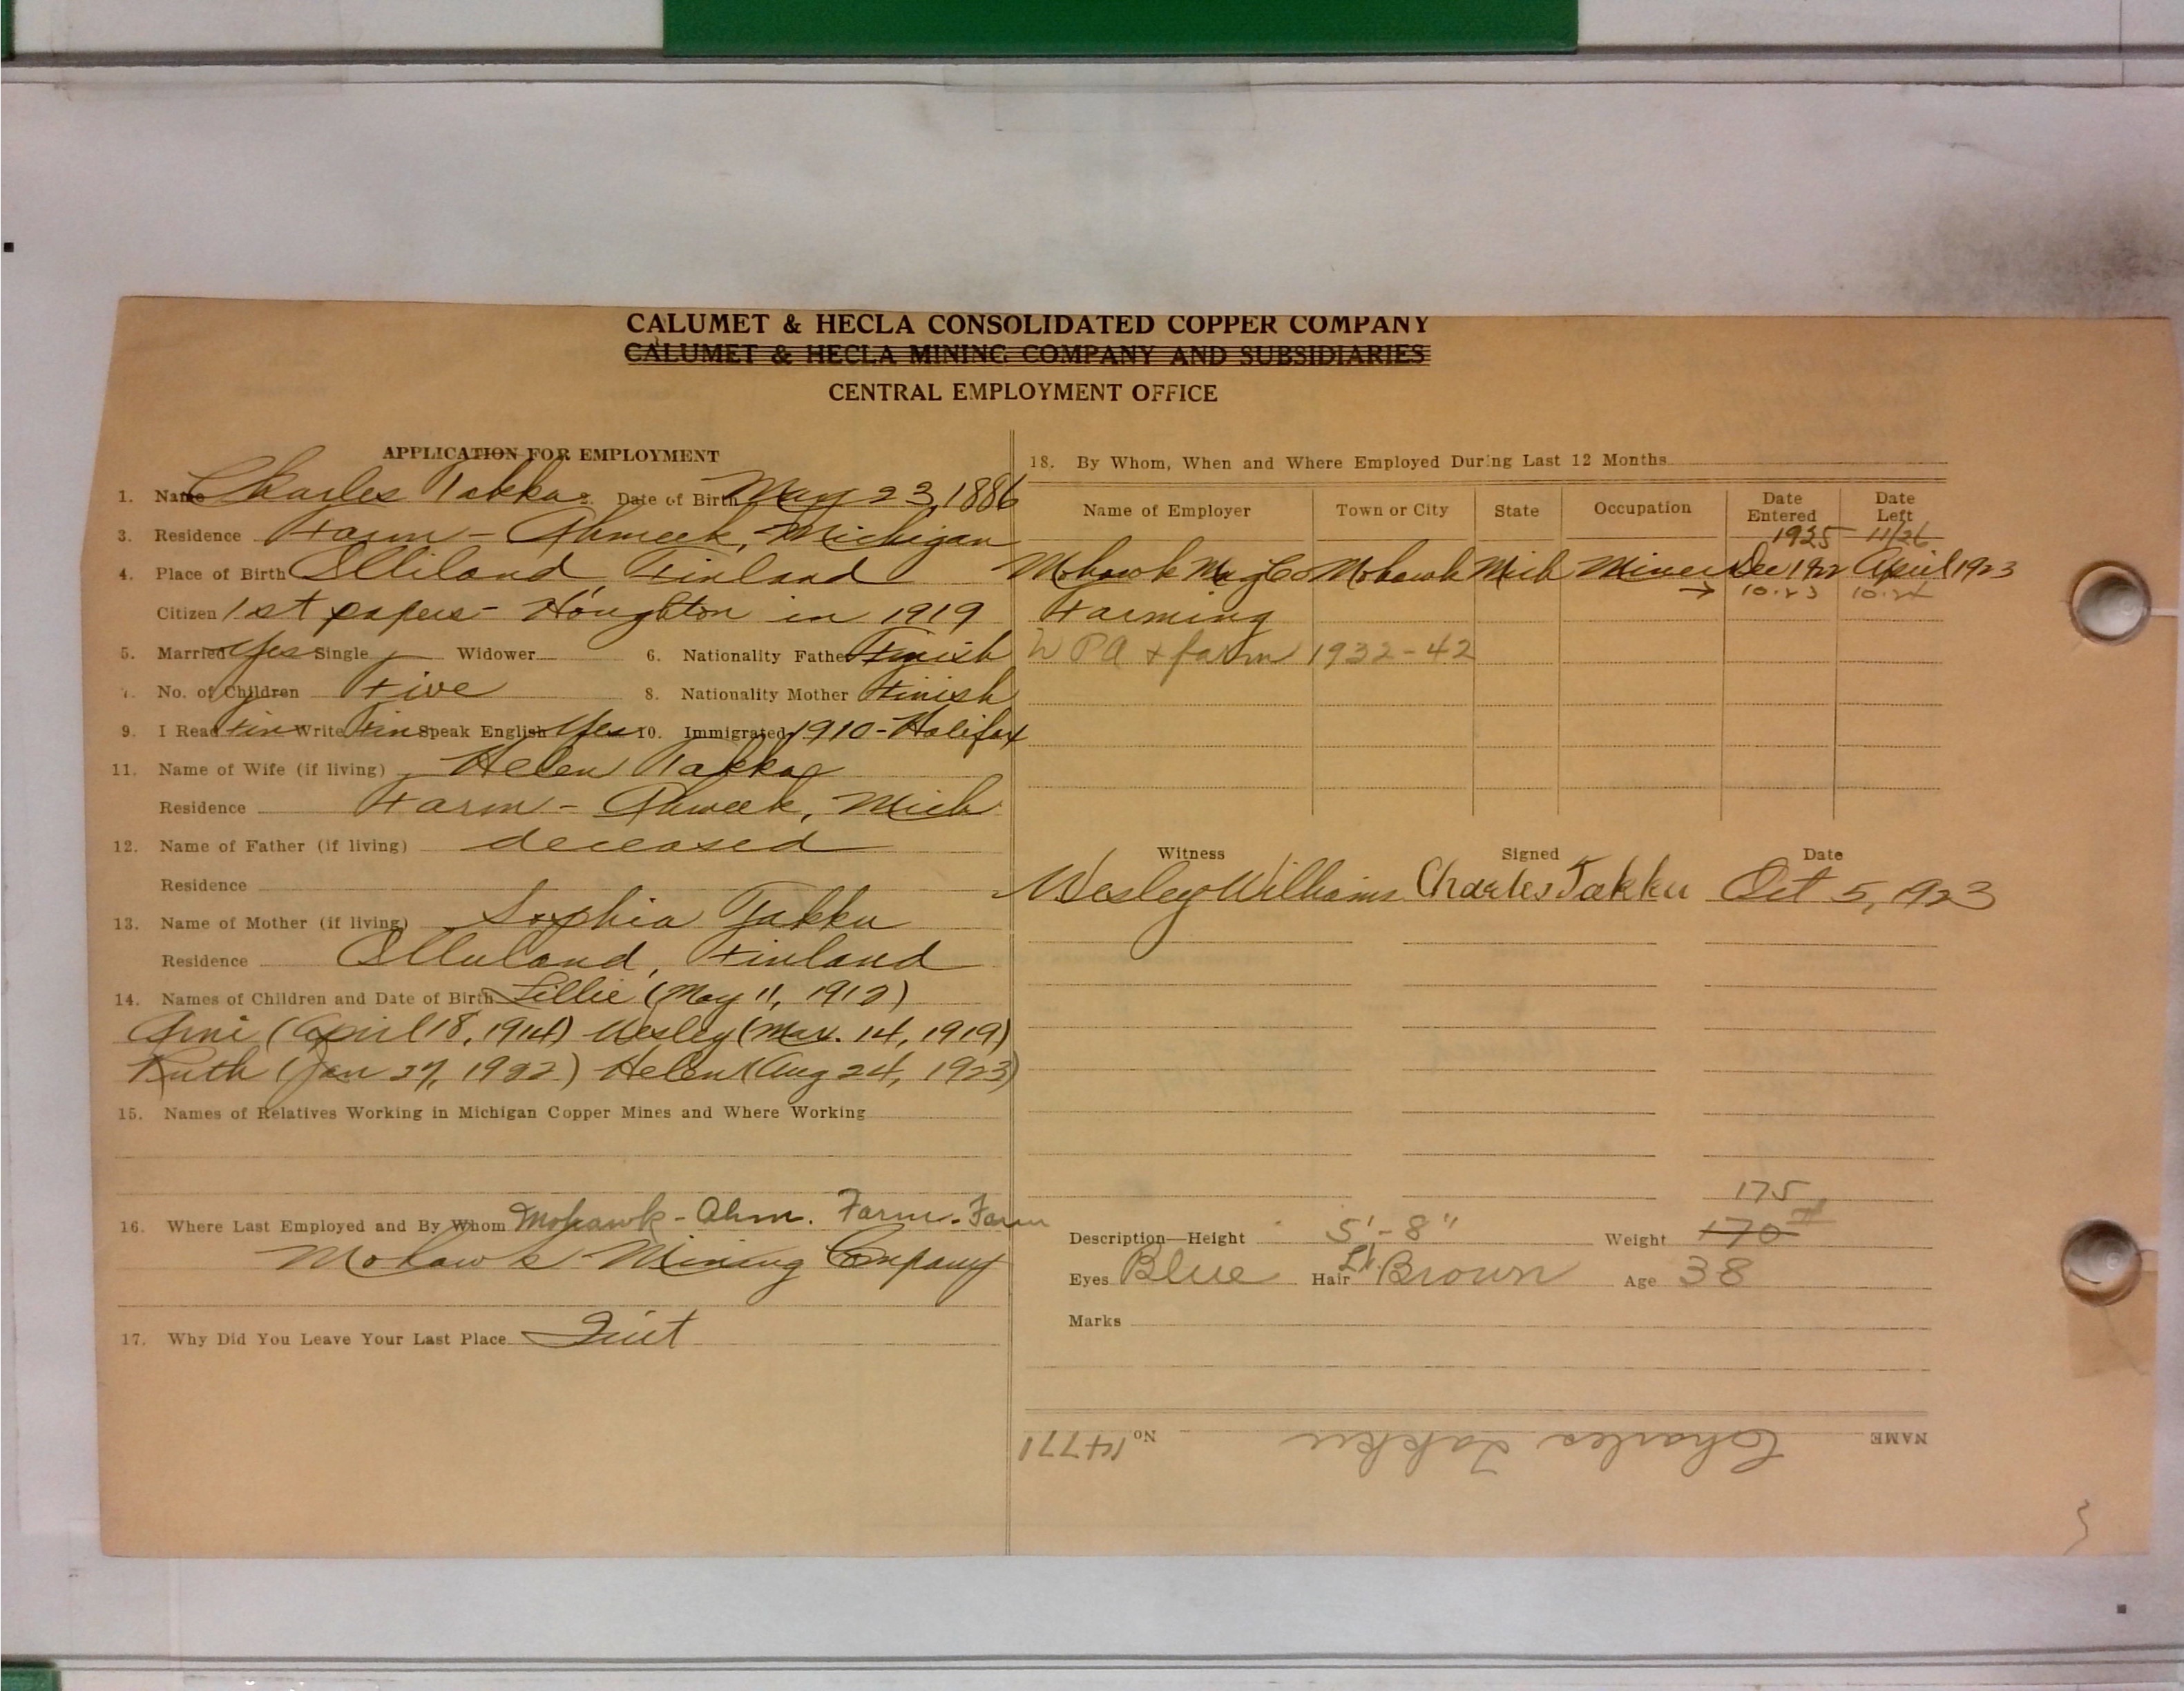 CALUMET & HECLA CONSOLIDATED COPPER COMPANY
CALUMET & HECLA MINING COMPANY AND SUBSIDIARIES
CENTRAL EMPLOYMENT OFFICE
APPLICATION FOR EMPLOYMENT
1. Name Charles Takku Date of Birth May 23, 1886
3. Residence Farm - Ahmeek, Michigan
4. Place of Birth Finland
Citizen 1st papers - Houghton in 1919
5. Married Yes Single Widower 6. Nationality Father Finish
7. No. of Children Five 8. Nationality Mother Finish
9. I Read Fin Write Fin Speak English Yes 10. Immigrated 1910 - Halifax
11. Name of Wife (if living) Helen Takku
Residence Farm - Ahmeek, Mich
12. Name of Father (if living) deceased
Residence
13. Name of Mother (if living) Sophia Takku
Residence Finland
14. Names of Children and Date of Birth Lillie (May 11, 1912)
Arni (April 18, 1914) Wesley (Mar. 14, 1919)
Ruth (Jan 27, 1922) Helen (Aug 24, 1923)
15. Names of Relatives Working in Michigan Copper Mines and Where Working
16. Where Last Employed and By Whom Mohawk - Ahm. Farm - Farm
Mohawk Mining Company
17. Why Did You Leave Your Last Place Quit
18. By Whom, When and Where Employed During Last 12 Months
Name of Employer Town or City State Occupation Date Entered Date Left
1925 11/26
Mohawk Mng Co Mohawk Mich Miner Dec 1922 April 1923
Farming → 10-23 10-24
W P A & farm 1932-42
Witness Signed Date
Wesley Williams Charles Takku Oct 5, 1923
175
Description—Height 5'-8" Weight 170
Eyes Blue Hair Lt. Brown Age 38
Marks
NAME Charles Takku No 14771